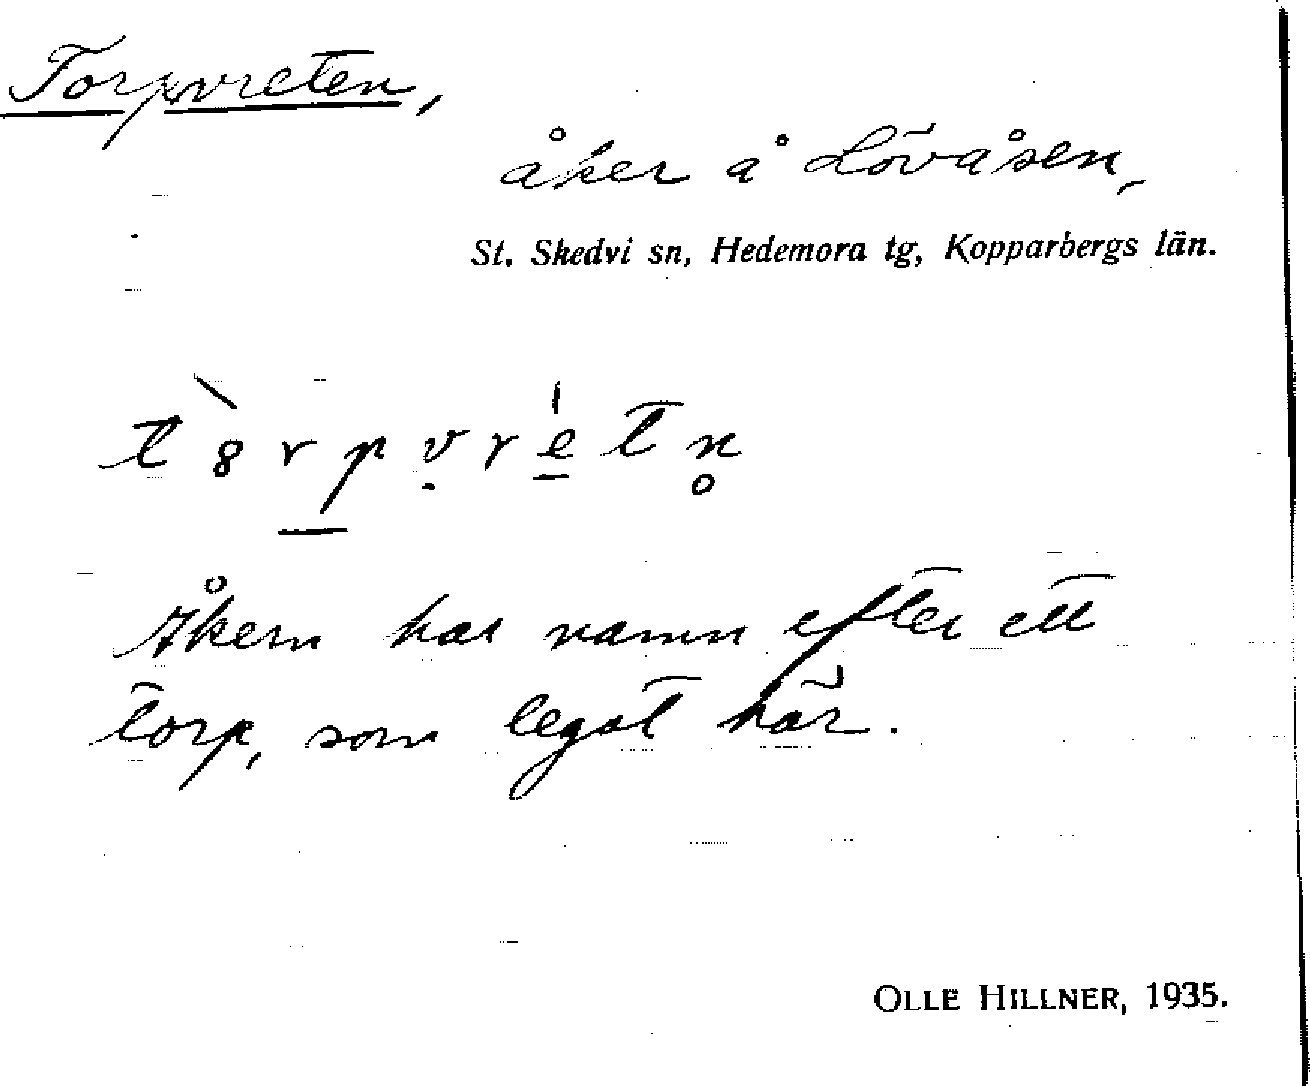 Torpvreten,
åker å Lövåsen,
St. Skedvi sn, Hedemora tg, Kopparbergs län.
t8̀rpṿre̱̍tn̥
Åkern har namn efter ett
torp, som legat här.
OLLE HILLNER, 1935.